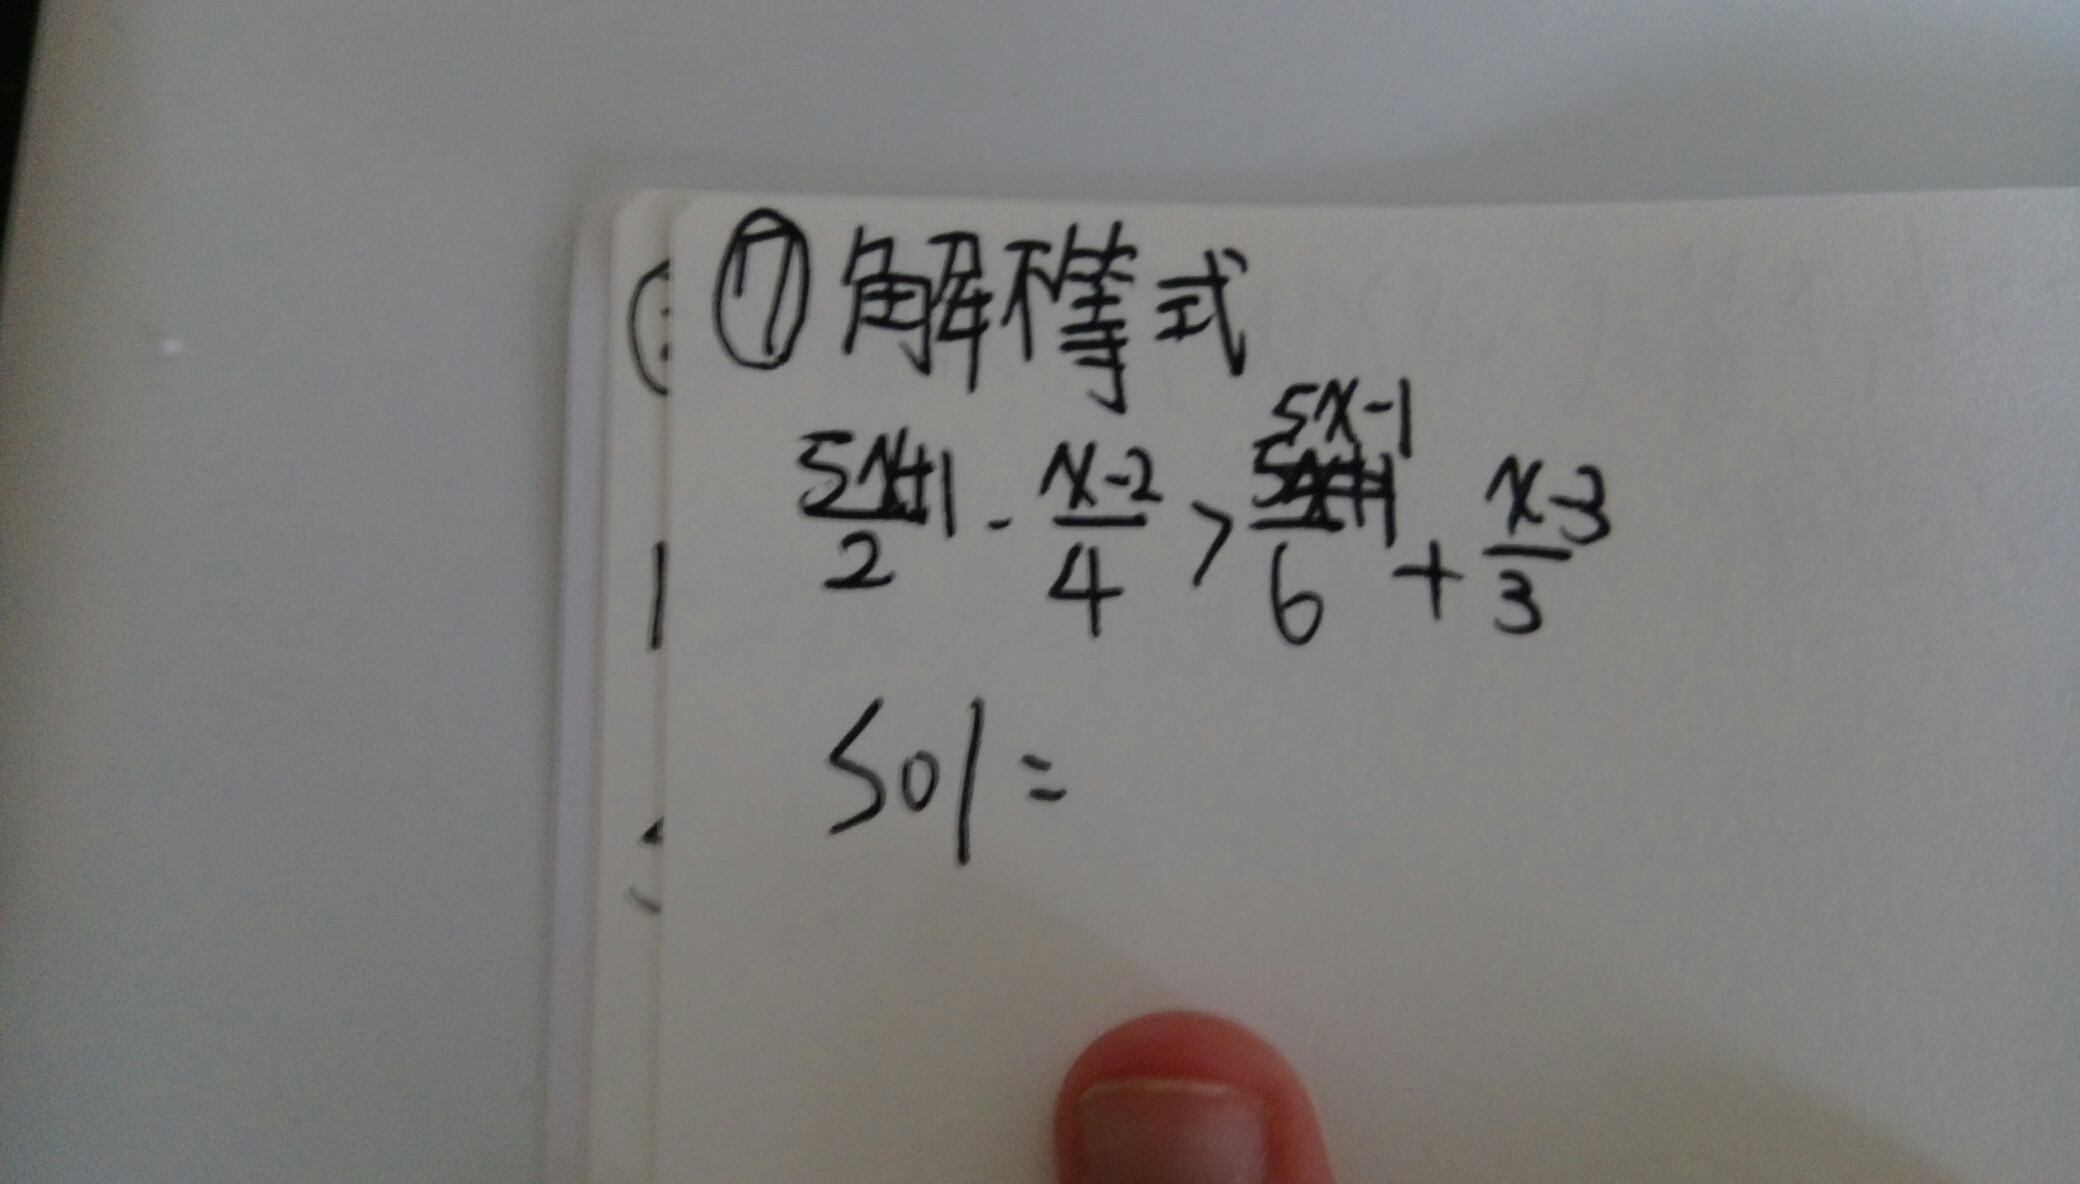 ⑦ 解不等式
5x+1/2 - x-2/4 > 5x-1/6 + x-3/3
Sol=